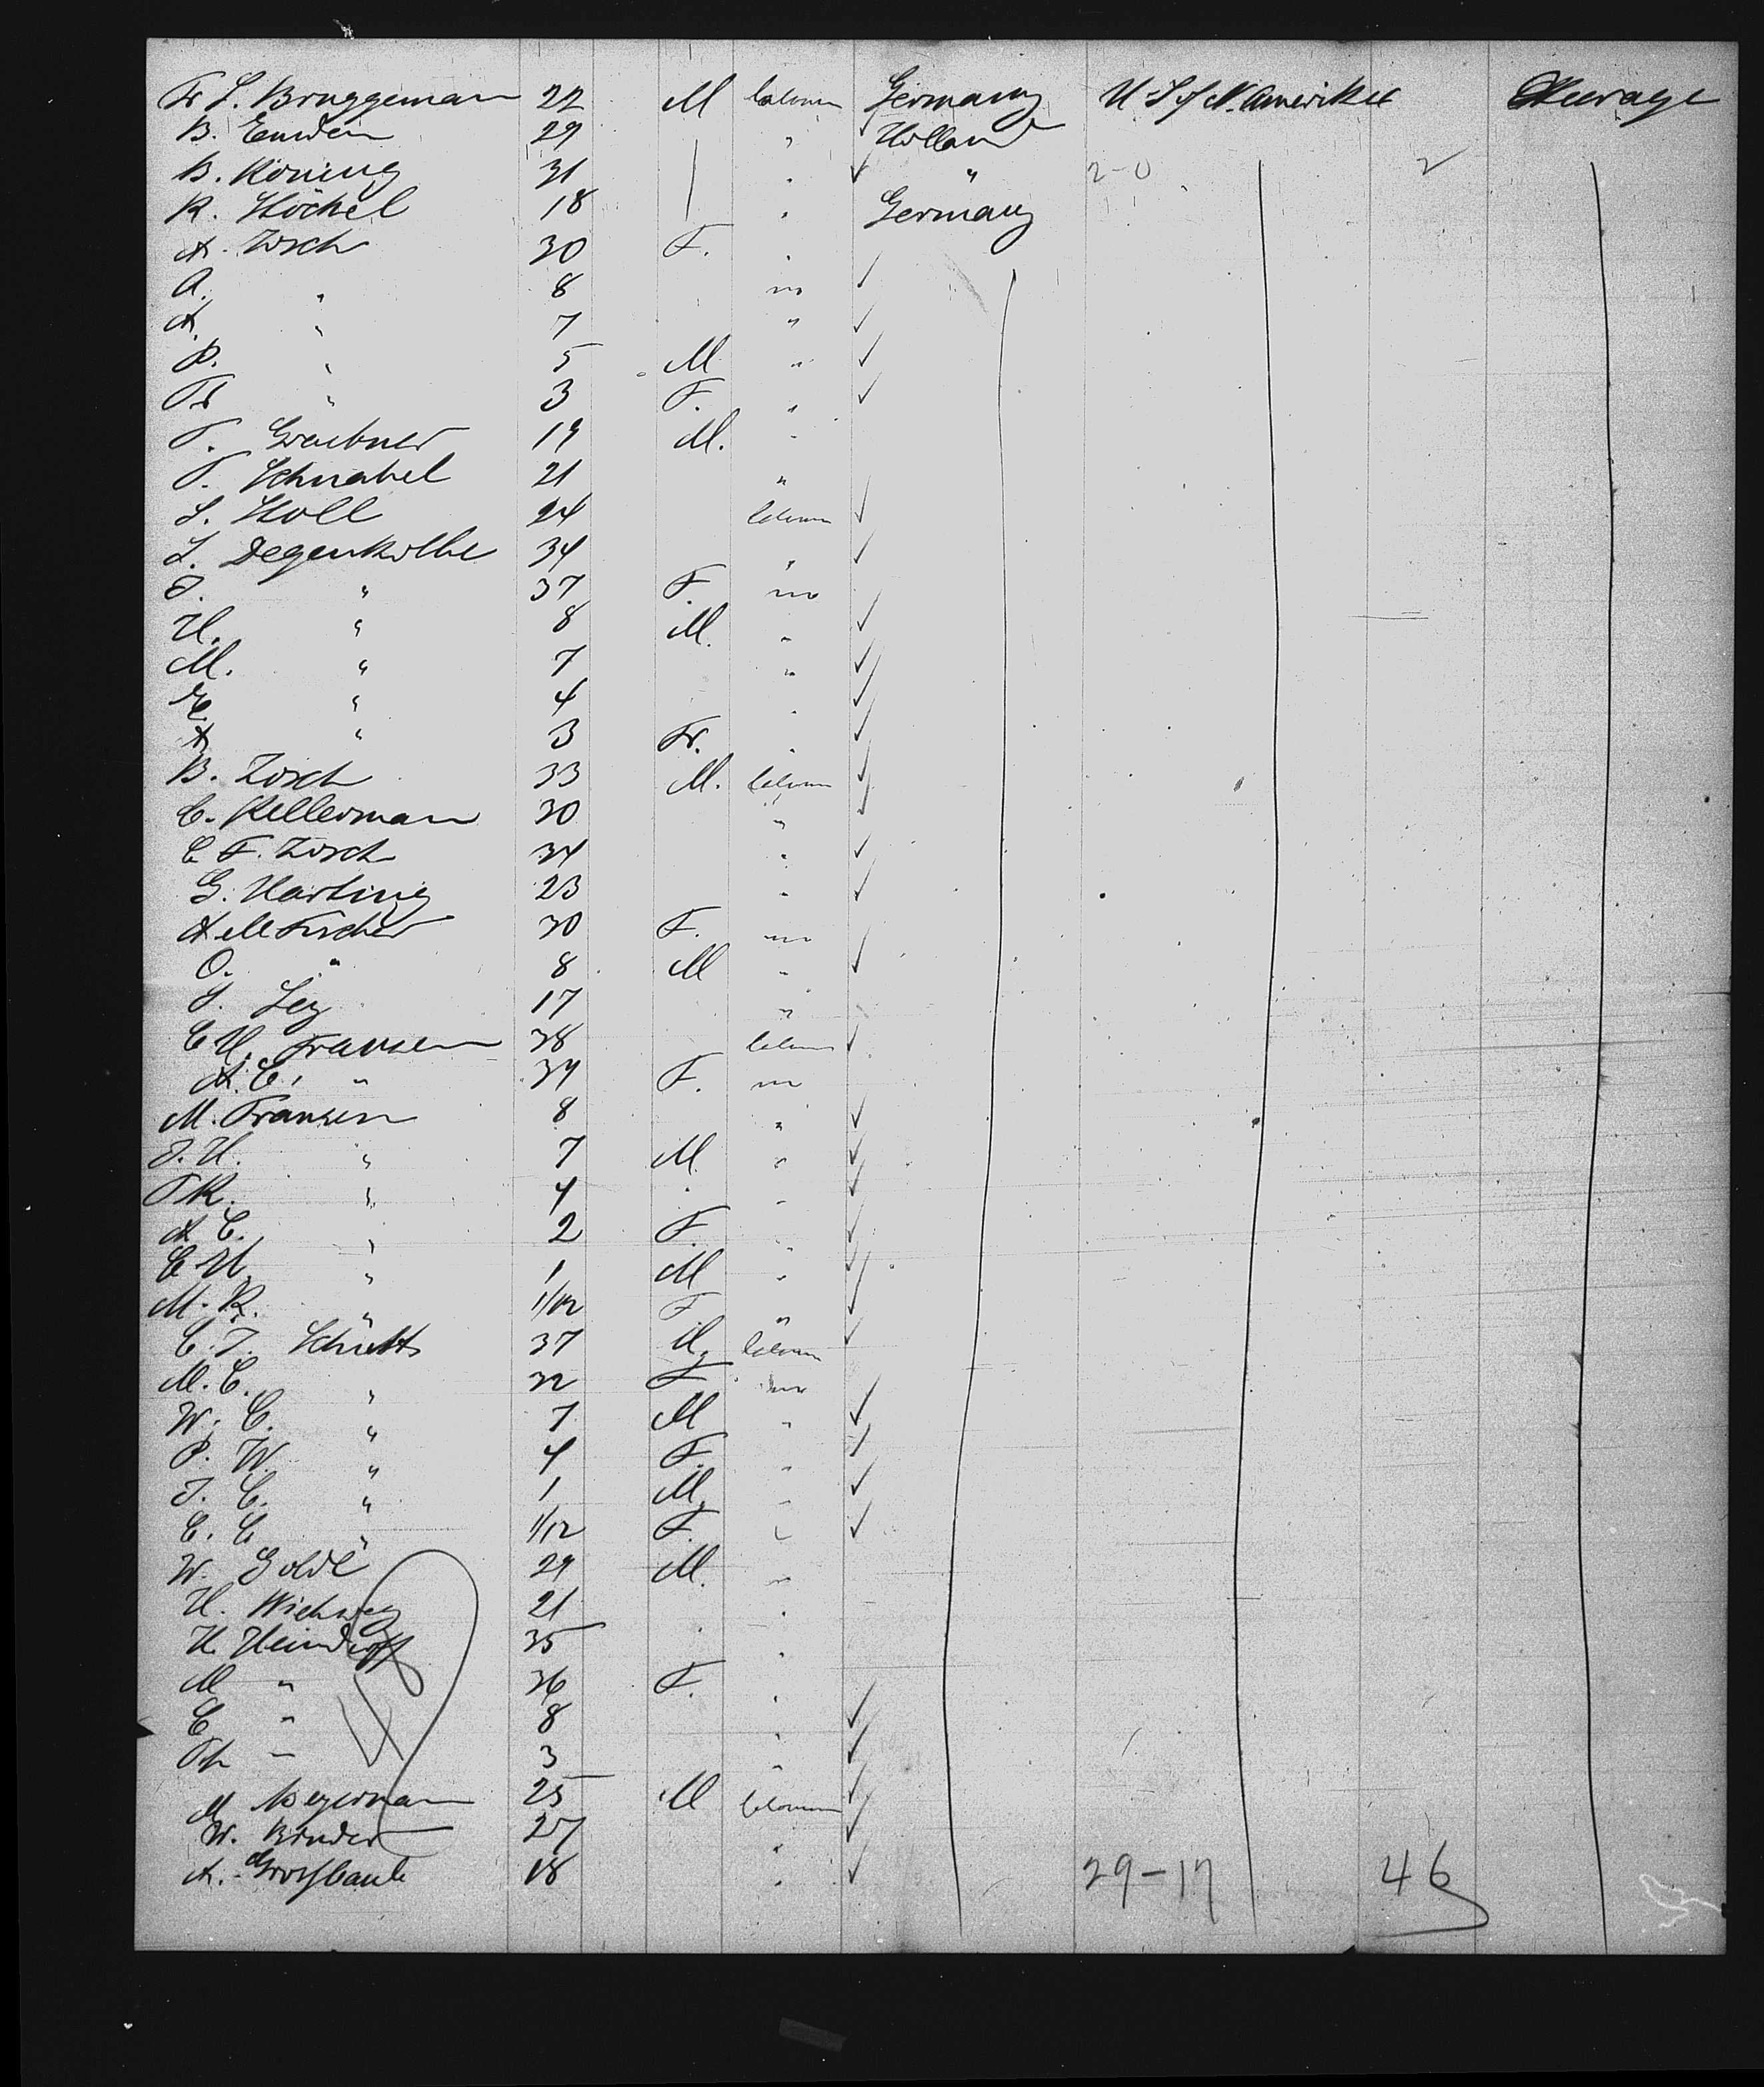 Fr L. Bruggeman 22 M Laborer Germany U S of N. Amerika Steerage
B. Emden 29 " Holland
B. Köning 31 " " 2-0 2
R. Höckel 18 " Germany
A. Zosch 30 F. "
A. " 8 no
A. " 7 "
P. " 5 M "
Fr " 3 F. "
F. Graebner 19 M. "
F. Schnabel 21 "
L. Holl 24 Laborer
L. Degenkolbe 34 "
J. " 37 F. no
H. " 8 M. "
M. " 7 "
E. " 4 "
A. " 3 Fr. "
B. Zosch 33 M. Laborer
C. Kellerman 30 "
C F. Zosch 34 "
G. Harting 23 "
A M Fischer 30 F. no
O. " 8 M "
J. Ley 17 "
C H. Fransen 38 Laborer
A. C. " 34 F. no
M. Fransen 8 "
J. H. " 7 M "
F R. " 4 "
A C. " 2 F. "
C H. " 1 M "
M. R. " 1/12 F "
C. J. Schutts 37 M. Laborer
M. C. " 32 F no
W. C. " 7 M "
P. W. " 4 F. "
J. C. " 1 M. "
C. C " 1/12 F. "
W. Golde 29 M. "
H. Wichweg 21 "
H. Heindorff 35 "
M " 36 F. "
C " 8 "
Th " 3 "
M Beyerman 25 M Laborer
W. Bruder 27 "
A. 18 " 29-17 46